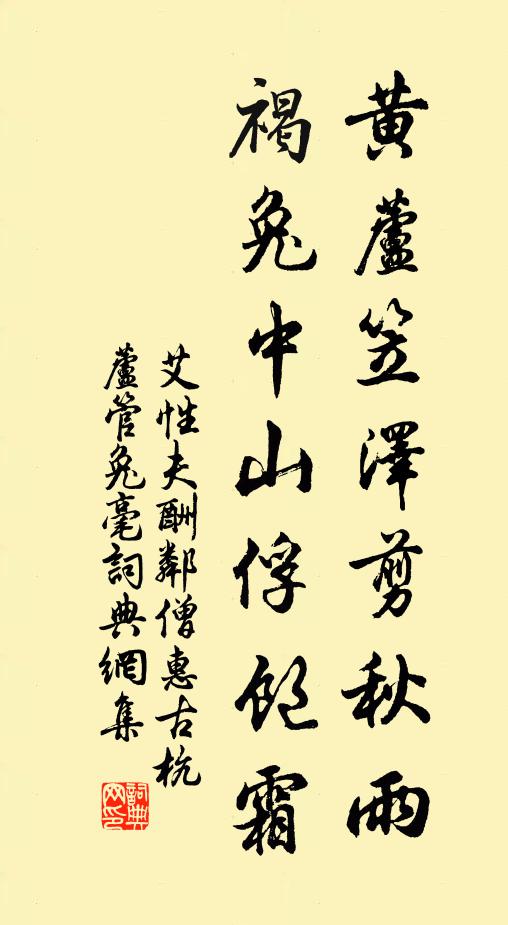 黃蘆笠澤剪秋雨
褐兔中山俘飽霜
艾性夫酬鄰僧惠古杭
蘆管兔毫詞典網集
詞典
网印